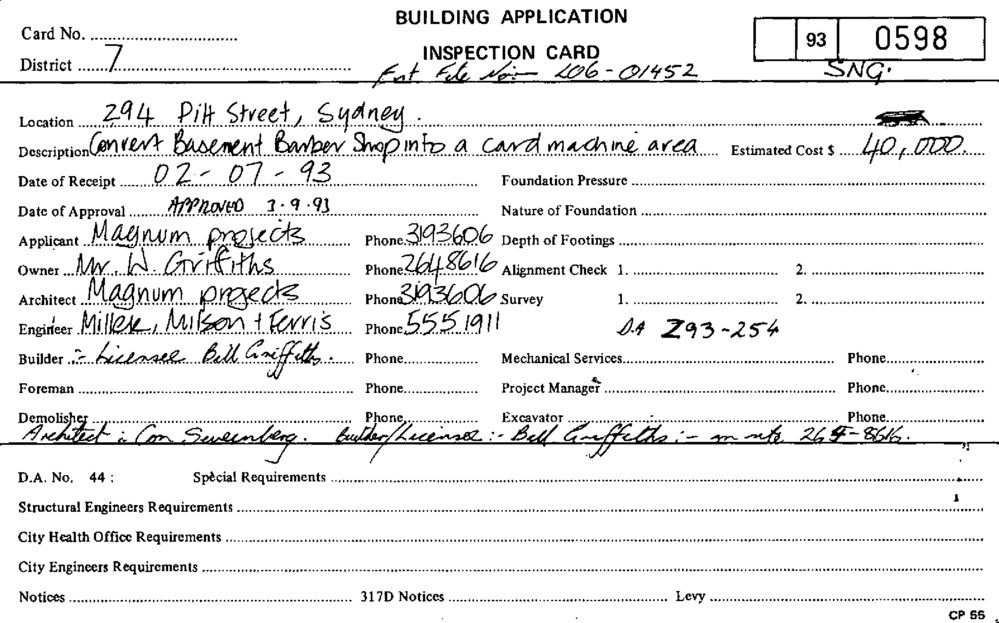 BUILDING APPLICATION
Card No. 93 0598
INSPECTION CARD
District 7 SNG.
Ext File No:- L06-01452
Location 294 Pitt Street, Sydney.
Description Convert Basement Barber Shop into a card machine area Estimated Cost $ 40,000.
Date of Receipt 02-07-93 Foundation Pressure
Date of Approval APPROVED 3.9.93 Nature of Foundation
Applicant Magnum projects Phone 3193606 Depth of Footings
Owner Mr. W. Griffiths Phone 2648616 Alignment Check 1. 2.
Architect Magnum projects Phone 3193606 Survey 1. 2.
Engineer Miller, Milson + Ferris Phone 555 1911 DA Z93-254
Builder :- Licensee Bill Griffiths. Phone Mechanical Services Phone
Foreman Phone Project Manager Phone
Demolisher Phone Excavator Phone
Architect : Con Builder/Licensee :- Bill Griffiths :- 264-8616.
D.A. No. 44 : Special Requirements
Structural Engineers Requirements
City Health Office Requirements
City Engineers Requirements
Notices 317D Notices Levy
CP 55